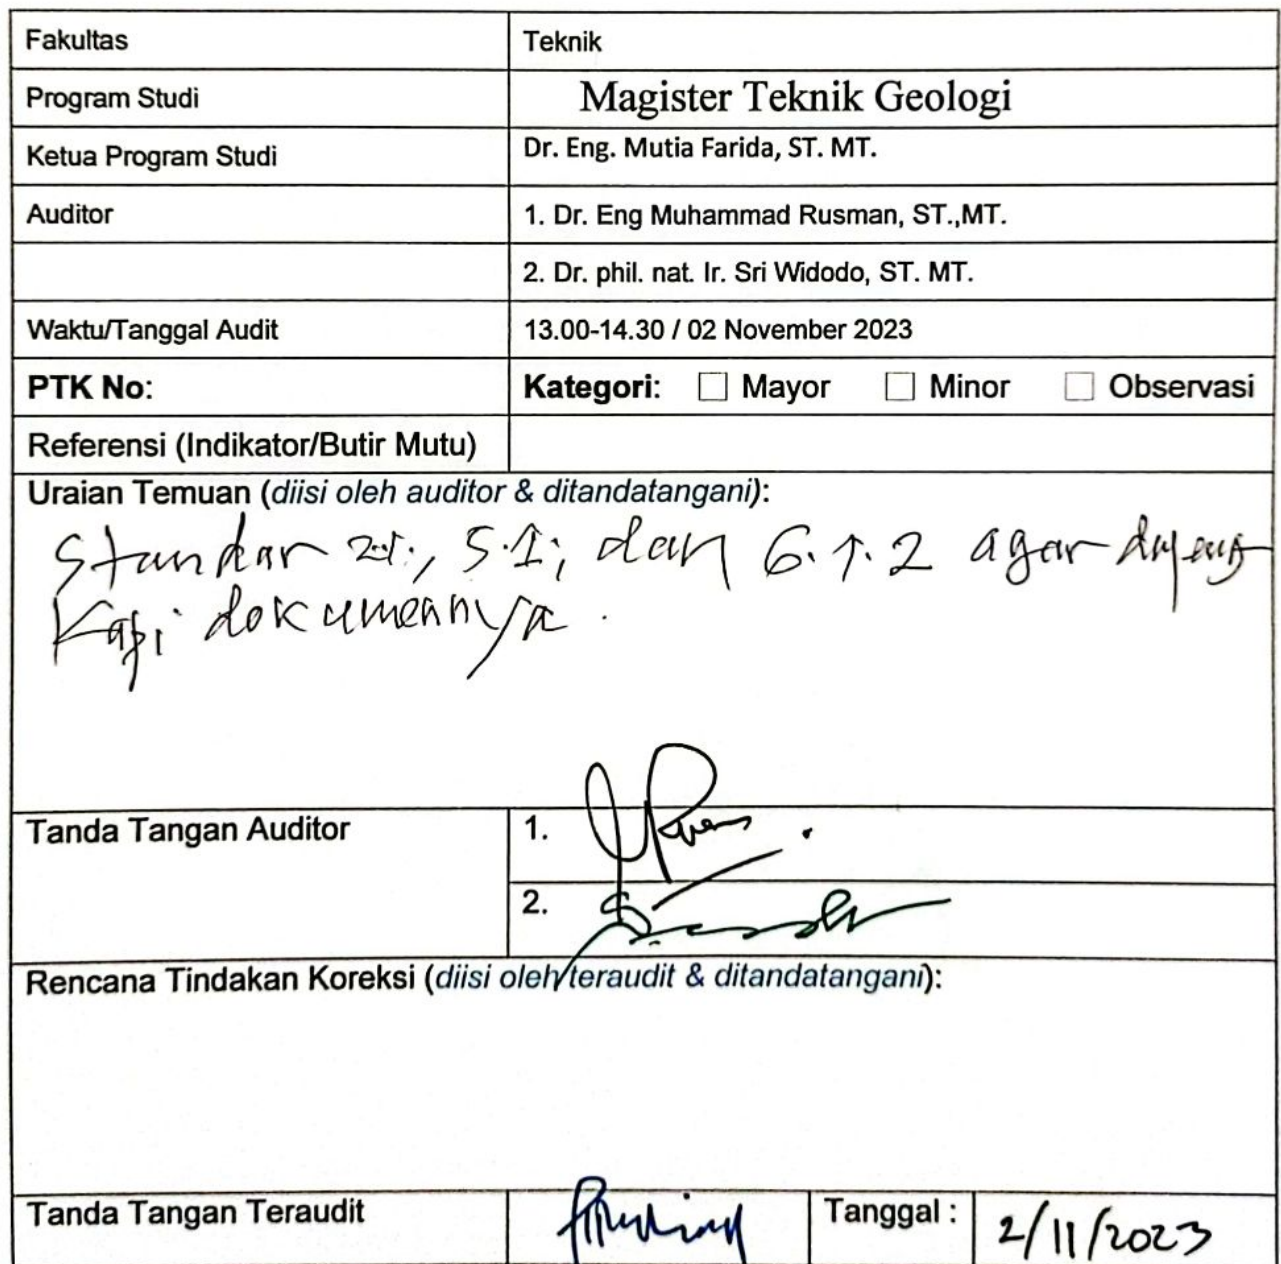 Fakultas Teknik
Program Studi Magister Teknik Geologi
Ketua Program Studi Dr. Eng. Mutia Farida, ST. MT.
Auditor 1. Dr. Eng Muhammad Rusman, ST.,MT.
2. Dr. phil. nat. Ir. Sri Widodo, ST. MT.
Waktu/Tanggal Audit 13.00-14.30 / 02 November 2023
PTK No: Kategori: ☐ Mayor ☐ Minor ☐ Observasi
Referensi (Indikator/Butir Mutu)
Uraian Temuan (diisi oleh auditor & ditandatangani):
Standar 5.1; dan 6.1.2 agar
dokumennya.
Tanda Tangan Auditor 1.
2.
Rencana Tindakan Koreksi (diisi oleh teraudit & ditandatangani):
Tanda Tangan Teraudit Tanggal : 2/11/2023